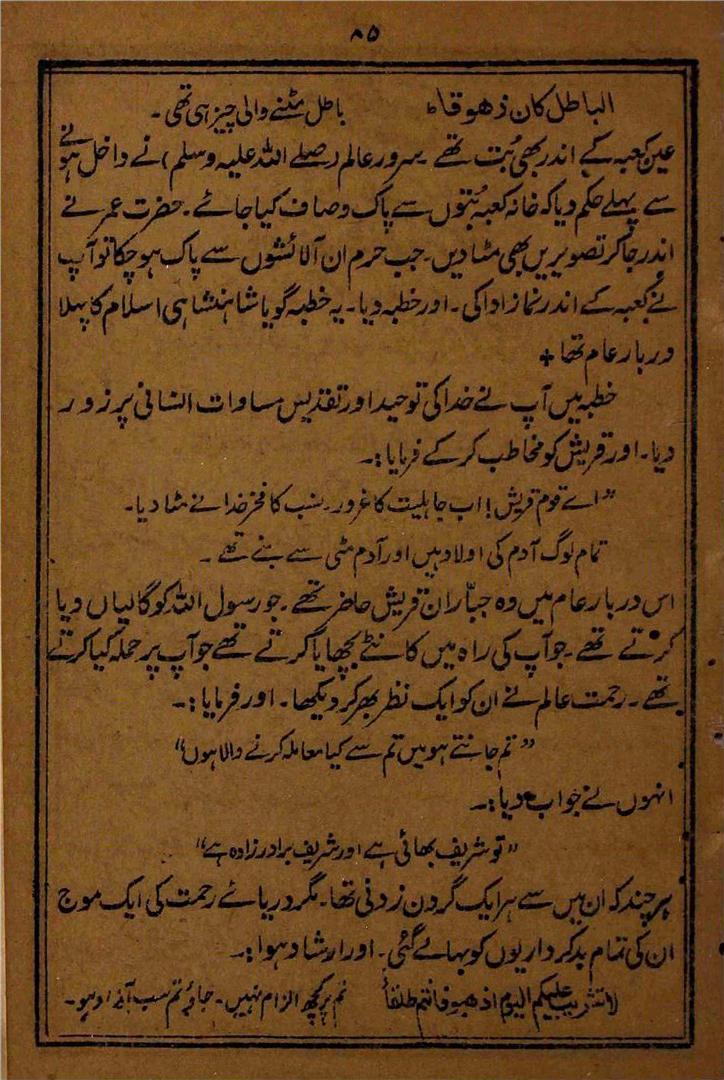 ۸۵
الباطل کان زھوقا ط باطل مٹنے والی چیز ہی تھی۔
عین کعبہ کے اندر بھی بُت تھے۔ سرور عالم (صلے اللہ علیہ وسلم) نے داخل ہونے
سے پہلے حکم دیا کہ خانہ کعبہ بُتوں سے پاک و صاف کیا جائے۔ حضرت عمر نے
اندر جا کر تصویریں بھی مٹا دیں۔ جب حرم ان آلائشوں سے پاک ہو چکا تو آپ
نے کعبہ کے اندر نماز ادا کی۔ اور خطبہ دیا۔ یہ خطبہ گویا شاہنشاہی اسلام کا پہلا
دربار عام تھا +
خطبہ میں آپ نے خدا کی توحید اور تقدیس مساوات انسانی پر زور
دیا۔ اور قریش کو مخاطب کر کے فرمایا:۔
”اے قوم قریش! اب جاہلیت کا غرور۔ نسب کا فخر خدا نے مٹا دیا۔
تمام لوگ آدم کی اولاد ہیں اور آدم مٹی سے بنے تھے۔
اس دربار عام میں وہ جبّاران قریش حاضر تھے۔ جو رسول اللہ کو گالیاں دیا
کرتے تھے۔ جو آپ کی راہ میں کانٹے بچھایا کرتے تھے جو آپ پر حملہ کیا کرتے
تھے۔ رحمت عالم نے ان کو ایک نظر بھر کر دیکھا۔ اور فرمایا:۔
”تم جانتے ہو میں تم سے کیا معاملہ کرنے والا ہوں“
انہوں نے جواب دیا:۔
”تو شریف بھائی ہے اور شریف برادر زادہ ہے“
ہر چند کہ ان میں سے ہر ایک گردن زدنی تھا۔ مگر دریائے رحمت کی ایک موج
ان کی تمام بدکرداریوں کو بہا لے گئی۔ اور ارشاد ہوا:۔
لا تثریب علیکم الیوم اذھبو فانتم طلقاً تم پر کچھ الزام نہیں۔ جاؤ تم سب آزاد ہو۔